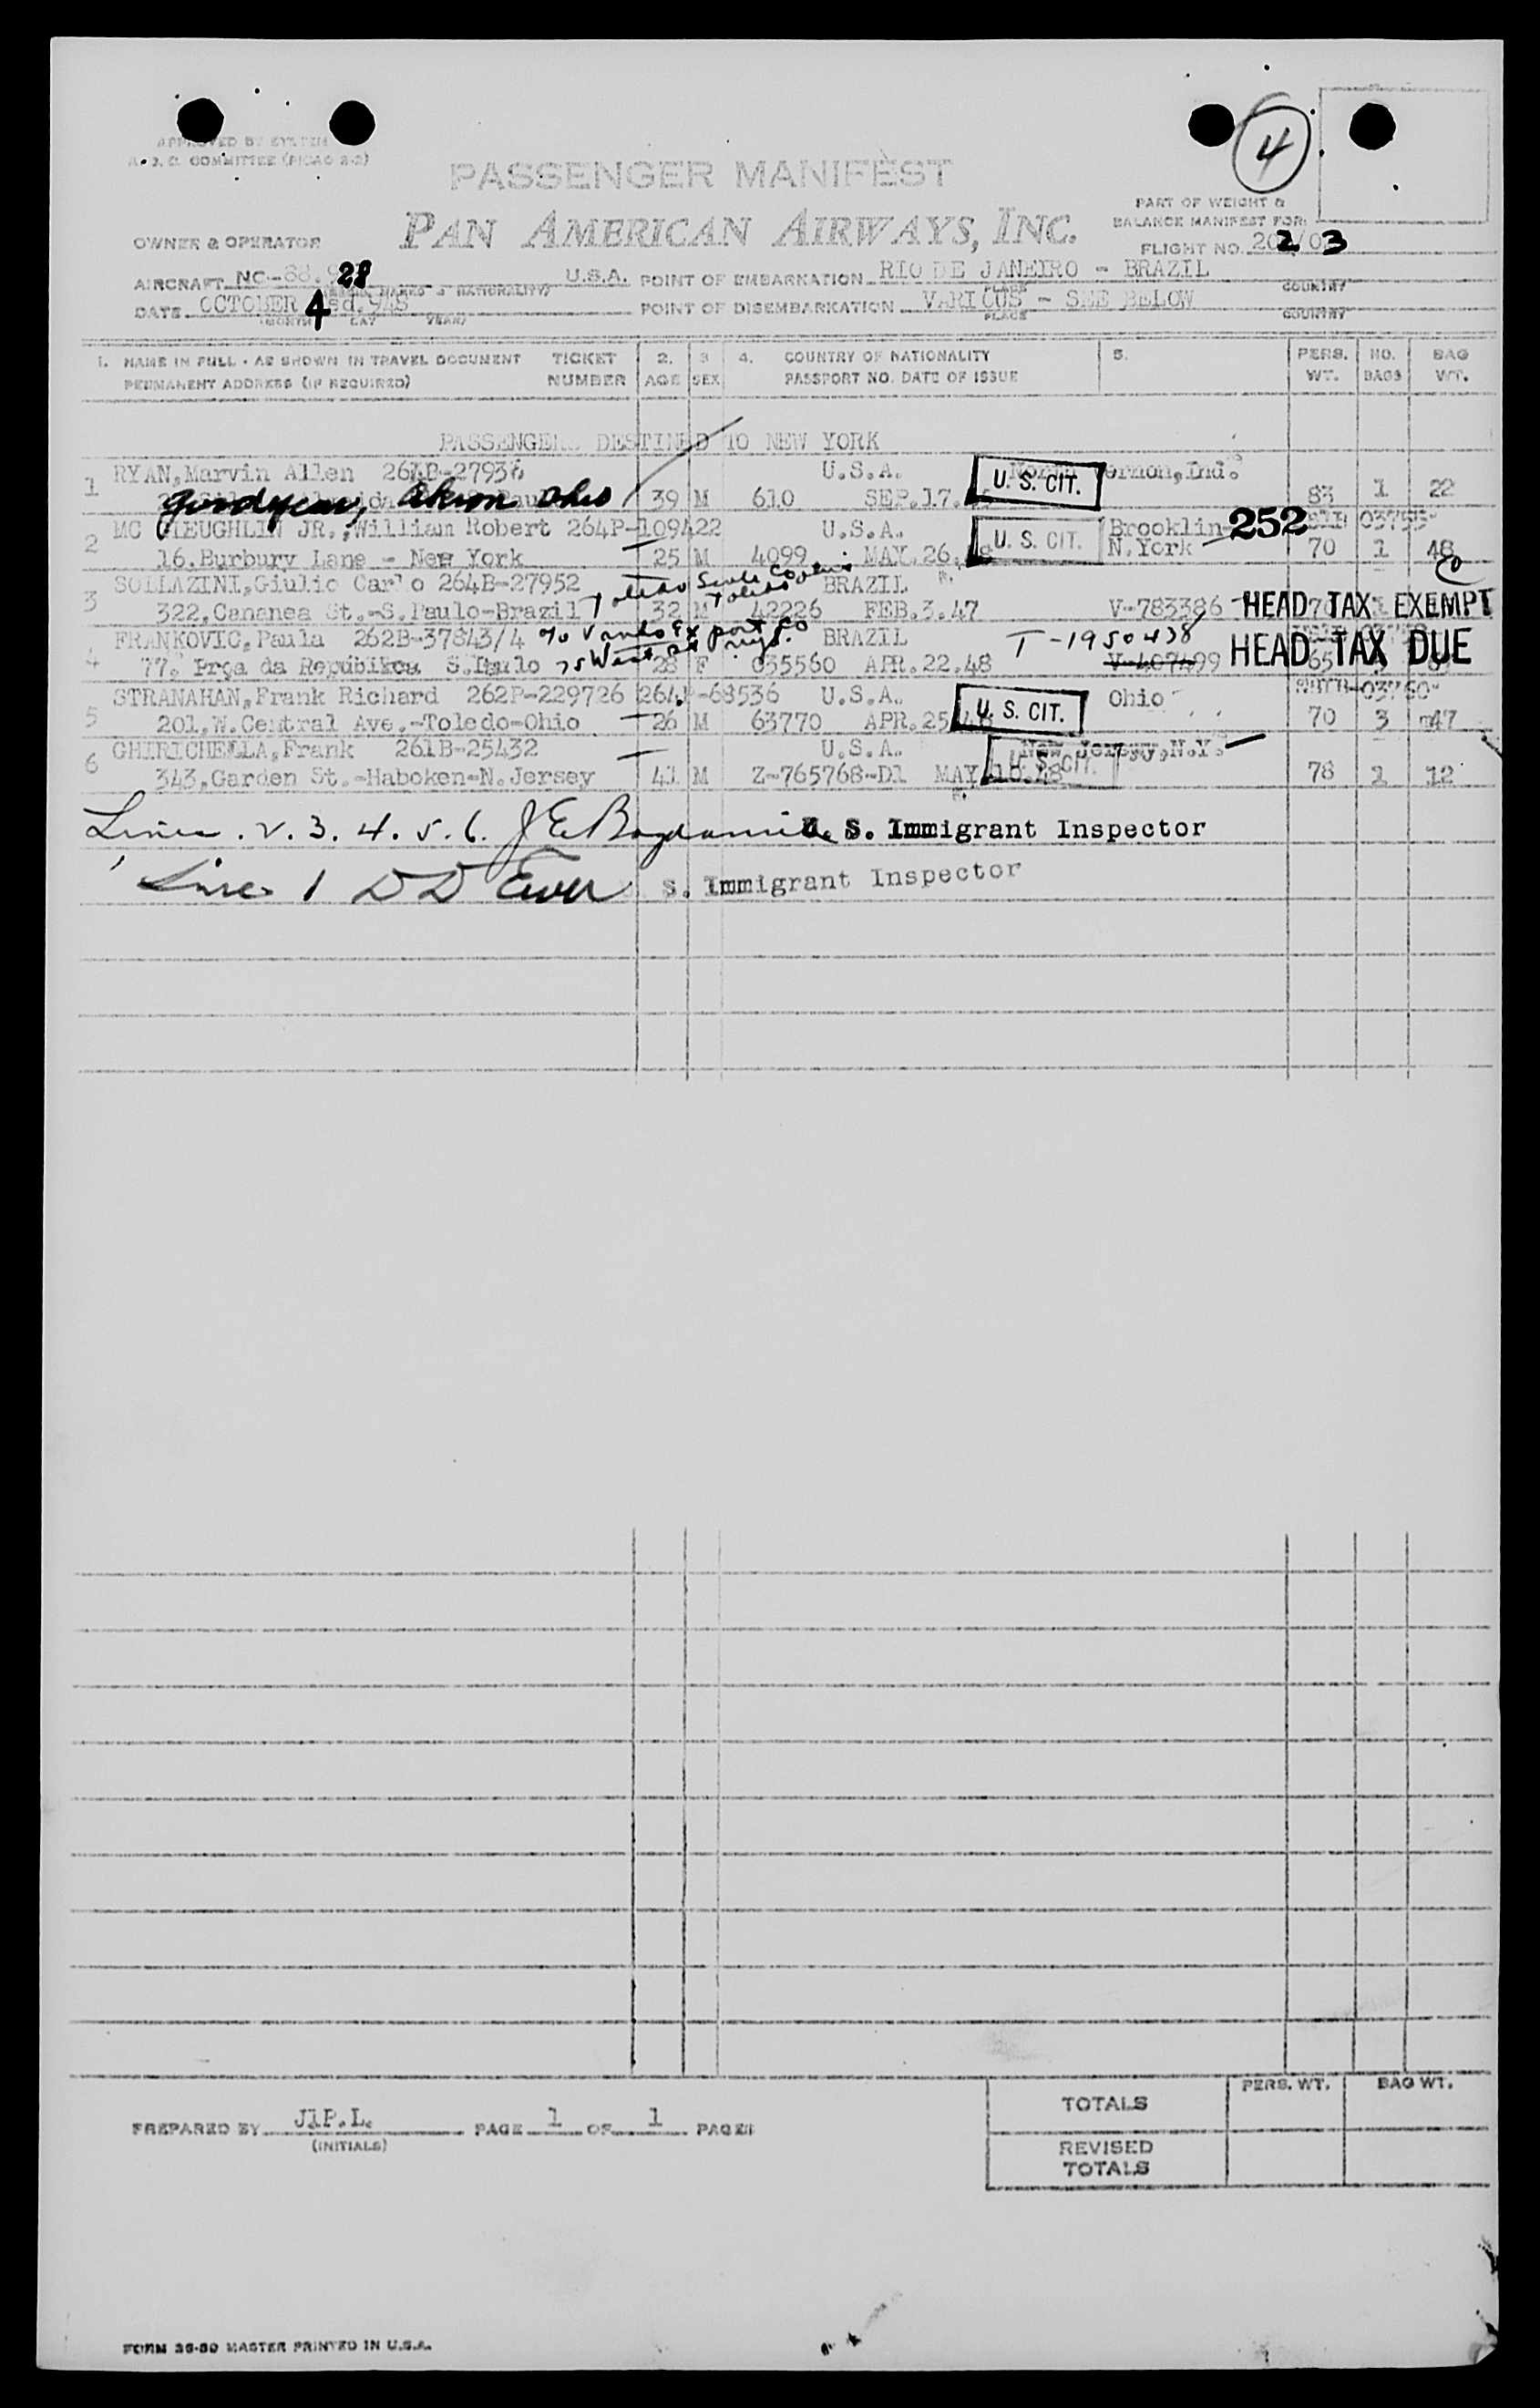 4
PASSENGER MANIFEST
PART OF WEIGHT &
BALANCE MANIFEST FOR:
PAN AMERICAN AIRWAYS, INC.
OWNER & OPERATOR
FLIGHT NO. 202/03
AIRCRAFT NC-88 28 U.S.A. POINT OF EMBARKATION RIO DE JANEIRO - BRAZIL
PLACE COUNTRY
DATE OCTOBER 4 948 POINT OF DISEMBARKATION VARIOUS - SEE BELOW
(MONTH DAY YEAR) PLACE COUNTRY
1. NAME IN FULL - AS SHOWN IN TRAVEL DOCUMENT TICKET 2. 3 4. COUNTRY OF NATIONALITY 5. PERS. NO. BAG
PERMANENT ADDRESS (IF REQUIRED) NUMBER AGE SEX PASSPORT NO. DATE OF ISSUE WT. BAGS WT.
PASSENGERS DESTINED TO NEW YORK
1 RYAN,Marvin Allen 264B-27936 U.S.A. Vernon,Ind.
Goodyear, Akron Ohio 39 M 610 SEP.17. U. S. CIT. 83 1 22
2 MC LEUGHLIN JR.,William Robert 264P-109422 U.S.A. U. S. CIT. Brooklin- 252
16.Burbury Lane - New York 25 M 4099 MAY.26.48 N.York 70 1 18
3 SOLLAZINI,Giulio Carlo 264B-27952 Toledo Scale Co BRAZIL
322,Cananea St.-S.Paulo-Brazil Toledo 32 M 42226 FEB.3.47 V-783386 HEAD TAX EXEMPT
4 FRANKOVIC,Paula 262B-37843/4 % Export Co BRAZIL T-1950438
77. Prça da Republica S.Paulo 75 West St nyc. 28 F 035560 APR.22.48 V-407499 HEAD TAX DUE 65
5 STRANAHAN,Frank Richard 262P-229726 264P-68536 U.S.A. U. S. CIT. Ohio
201,W.Central Ave.-Toledo-Ohio 26 M 63770 APR.25.48 70 3 47
6 GHIRICHELLA,Frank 261B-25432 U.S.A. New Jersey,N.Y.
343,Garden St.-Haboken-N.Jersey 41 M Z-765768-D1 MAY.10.48 U. S. CIT. 78 1 12
Lines . 2. 3. 4. 5. 6. U. S. Immigrant Inspector
Line 1 S. Immigrant Inspector
TOTALS PERS. WT. BAG WT.
PREPARED BY J1P.L. PAGE 1 OF 1 PAGES
(INITIALS)
REVISED
TOTALS
FORM 36-80 MASTER PRINTED IN U.S.A.